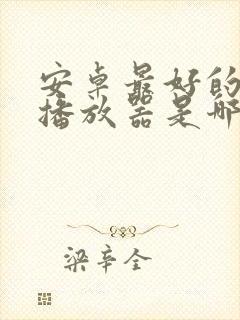 安卓最好的
播放器是哪
梁辛全